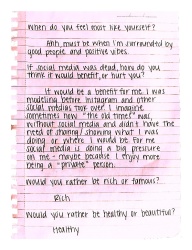 When do you feel most like yourself?
Ahh must be when i'm surrounded by
good people and positive vibes.
If social media was dead, how do you
think it would benefit or hurt you?
It would be a benefit for me. I was
modeling before instagram and other
social medias took over. I imagine
sometimes how "the old times" was,
without social media and didn't have the
need of sharing/showing what I was
doing or where I would be. For me
social media is doing a big pressure
on me - maybe because I enjoy more
being a "private" person.
Would you rather be rich or famous?
Rich
Would you rather be healthy or beautiful?
Healthy